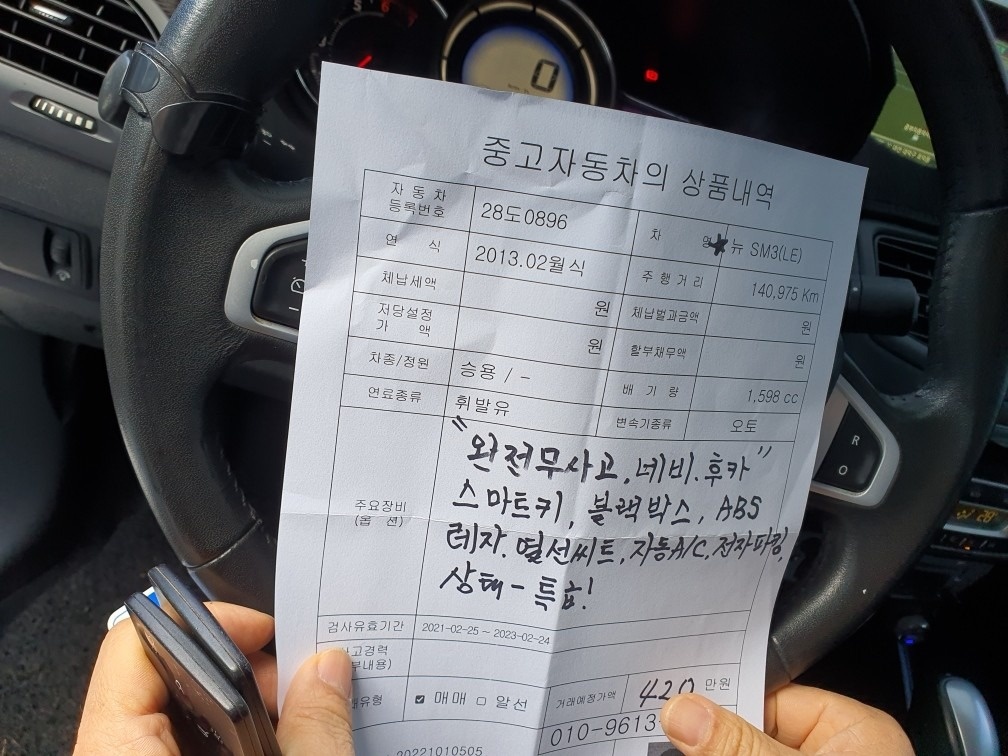 0
중고자동차의 상품내역
자동차 등록번호 28도0896 차 명 뉴 SM3(LE)
연 식 2013.02월식 주행거리 140,975 Km
체납세액 원 체납벌과금액 원
저당설정 가 액 원 할부채무액 원
차종/정원 승용 / - 배 기 량 1,598 cc
연료종류 휘발유 변속기종류 오토
주요장비 (옵 션)
"완전무사고, 네비.후카"
스마트키, 블랙박스, ABS
레자. 열선씨트, 자동A/C, 전자파킹,
상태-특급!
검사유효기간 2021-02-25 ~ 2023-02-24
고경력
부내용)
유형 ☑ 매매 □ 알선 거래예정가액 420 만원
010-9613-
20221010505
R
O